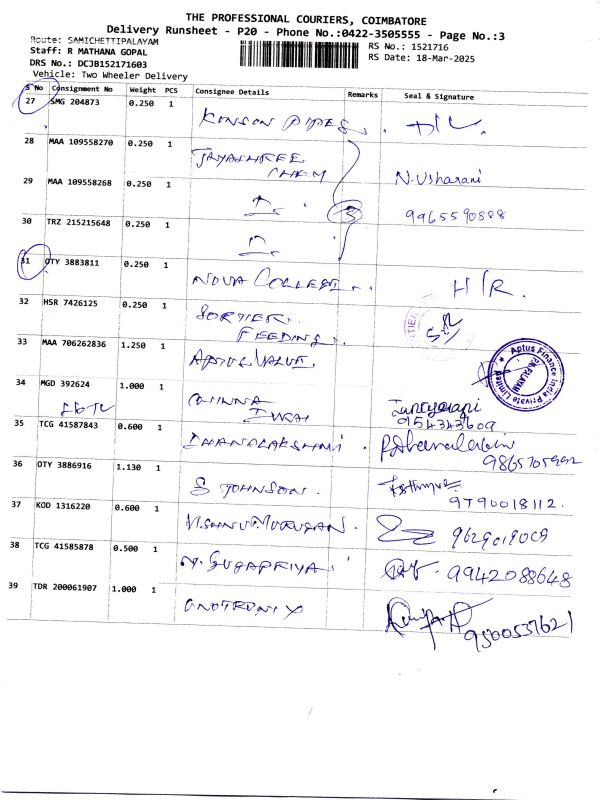 THE PROFESSIONAL COURIERS, COIMBATORE
Delivery Runsheet - P20 - Phone No.:0422-3505555 - Page No.:3
Route: SAMICHETTIPALAYAM
Staff: R MATHANA GOPAL
RS No.: 1521716
DRS No.: DCJB152171603
RS Date: 18-Mar-2025
Vehicle: Two Wheeler Delivery
S No Consignment No Weight PCS Consignee Details Remarks Seal & Signature
27 SMG 204873 0.250 1
KONSON PIPES.
28 MAA 109558270 0.250 1
JAYASHREE CHEM N.Usharani
29 MAA 109558268 0.250 1
3 9965590888
30 TRZ 215215648 0.250 1
31 OTY 3883811 0.250 1
NOVA COLLEGE H/R.
32 HSR 7426125 0.250 1
FEEDING.
33 MAA 706262836 1.250 1
APTUS VALUE. Aptus Finance India Private Limited
34 MGD 392624 1.000 1
CHINNA
954343609
35 TCG 41587843 0.600 1
DHANALAKSHMI. P.Dhanalakshmi
9865705992
36 OTY 3886916 1.130 1
S JOHNSON.
9790018112.
37 KOD 1316220 0.600 1
VISHNU MURUGAN. 9629019009
38 TCG 41585878 0.500 1
N. SUGAPRIYA 9942088648
39 TDR 200061907 1.000 1
ONOTRONIX
9500537621